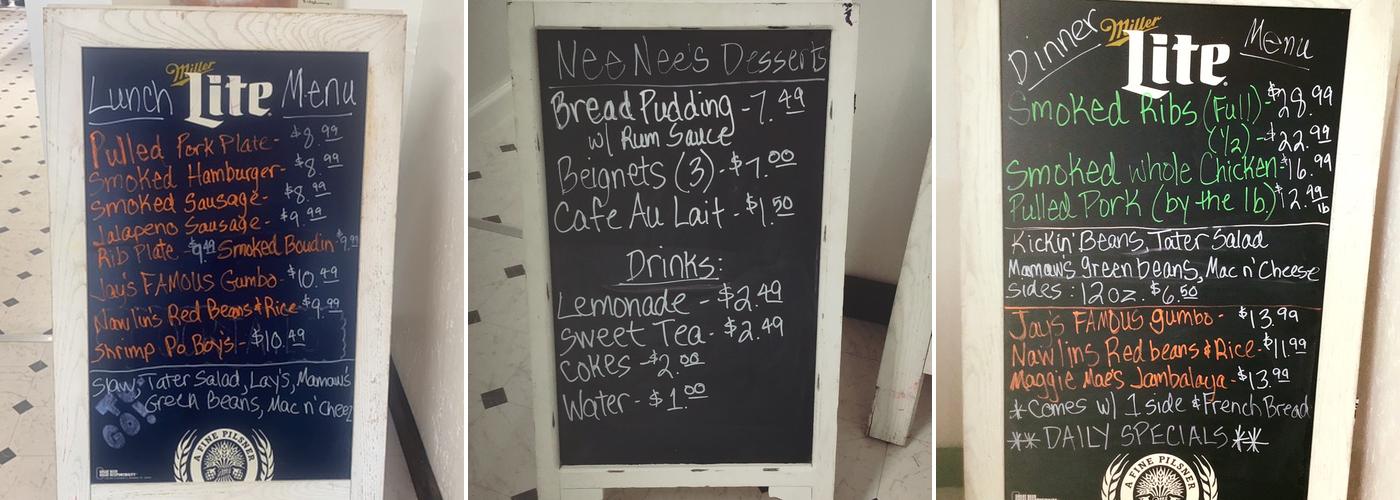 Lunch Miller Lite Menu
Pulled Pork Plate - $8.99
Smoked Hamburger - $8.99
Smoked Sausage - $8.99
Jalapeno Sausage - $9.99
Rib Plate - $9.49 Smoked Boudin - $9.99
Jay's FAMOUS Gumbo - $10.49
Nawlin's Red Beans & Rice - $9.99
Shrimp Po Boys - $10.49
Slaw, Tater Salad, Lay's, Mamaw's
Green Beans, Mac n' Cheez
TO GO!
A FINE PILSNER
Nee Nee's Desserts
Bread Pudding - 7.49
w/ Rum Sauce
Beignets (3) - $7.00
Cafe Au Lait - $1.50
Drinks:
Lemonade - $2.49
Sweet Tea - $2.49
Cokes - $2.00
Water - $1.00
Dinner Miller Lite Menu
Smoked Ribs (Full) - $28.99
(1/2) - $22.99
Smoked whole Chicken - $16.99
Pulled Pork (by the lb.) $12.99 lb
Kickin' Beans, Tater Salad
Mamaw's green beans, Mac n' Cheese
Sides : 12 oz. $6.50
Jay's FAMOUS gumbo - $13.99
Nawlins Red beans & Rice - $11.99
Maggie Mae's Jambalaya - $13.99
*Comes w/ 1 side & French Bread
** DAILY SPECIALS **
A FINE PILSNER